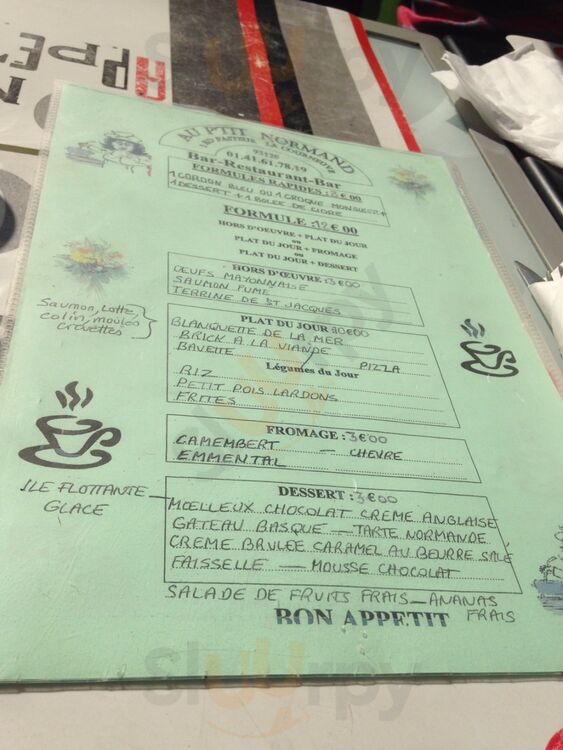 AU P'TIT NORMAND
PASTEUR LA COURNEUVE
93120
01.41.61.78.19
Bar-Restaurant-Bar
FORMULES RAPIDES : 8€00
1 CORDON BLEU OU 1 CROQUE MONSIEUR +
1 DESSERT + 1 BOLEE DE CIDRE
FORMULE : 12€00
HORS D'OEUVRE + PLAT DU JOUR
ou
PLAT DU JOUR + FROMAGE
ou
PLAT DU JOUR + DESSERT
HORS D'ŒUVRE : 3€00
OEUFS MAYONNAISE
SAUMON FUME
TERRINE DE ST JACQUES
Saumon, Lotte,
colin, moules
crevettes
PLAT DU JOUR : 10€00
BLANQUETTE DE LA MER
BRICK A LA VIANDE
BAVETTE / PIZZA
Légumes du Jour
RIZ
PETIT POIS LARDONS
FRITES
FROMAGE : 3€00
CAMEMBERT — CHEVRE
EMMENTAL
DESSERT : 3€00
ILE FLOTTANTE
GLACE
MŒLLEUX CHOCOLAT CREME ANGLAISE
GATEAU BASQUE — TARTE NORMANDE
CREME BRULEE CARAMEL AU BEURRE SALE
FAISSELLE — MOUSSE CHOCOLAT
SALADE DE FRUITS FRAIS — ANANAS
FRAIS
BON APPETIT
Sluurpy